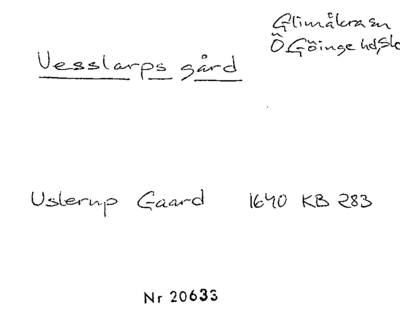 Glimåkra sn
Ö Göinge hd, Sk
Vesslarps gård
Uslerup Gaard 1640 KB 283
Nr 20633